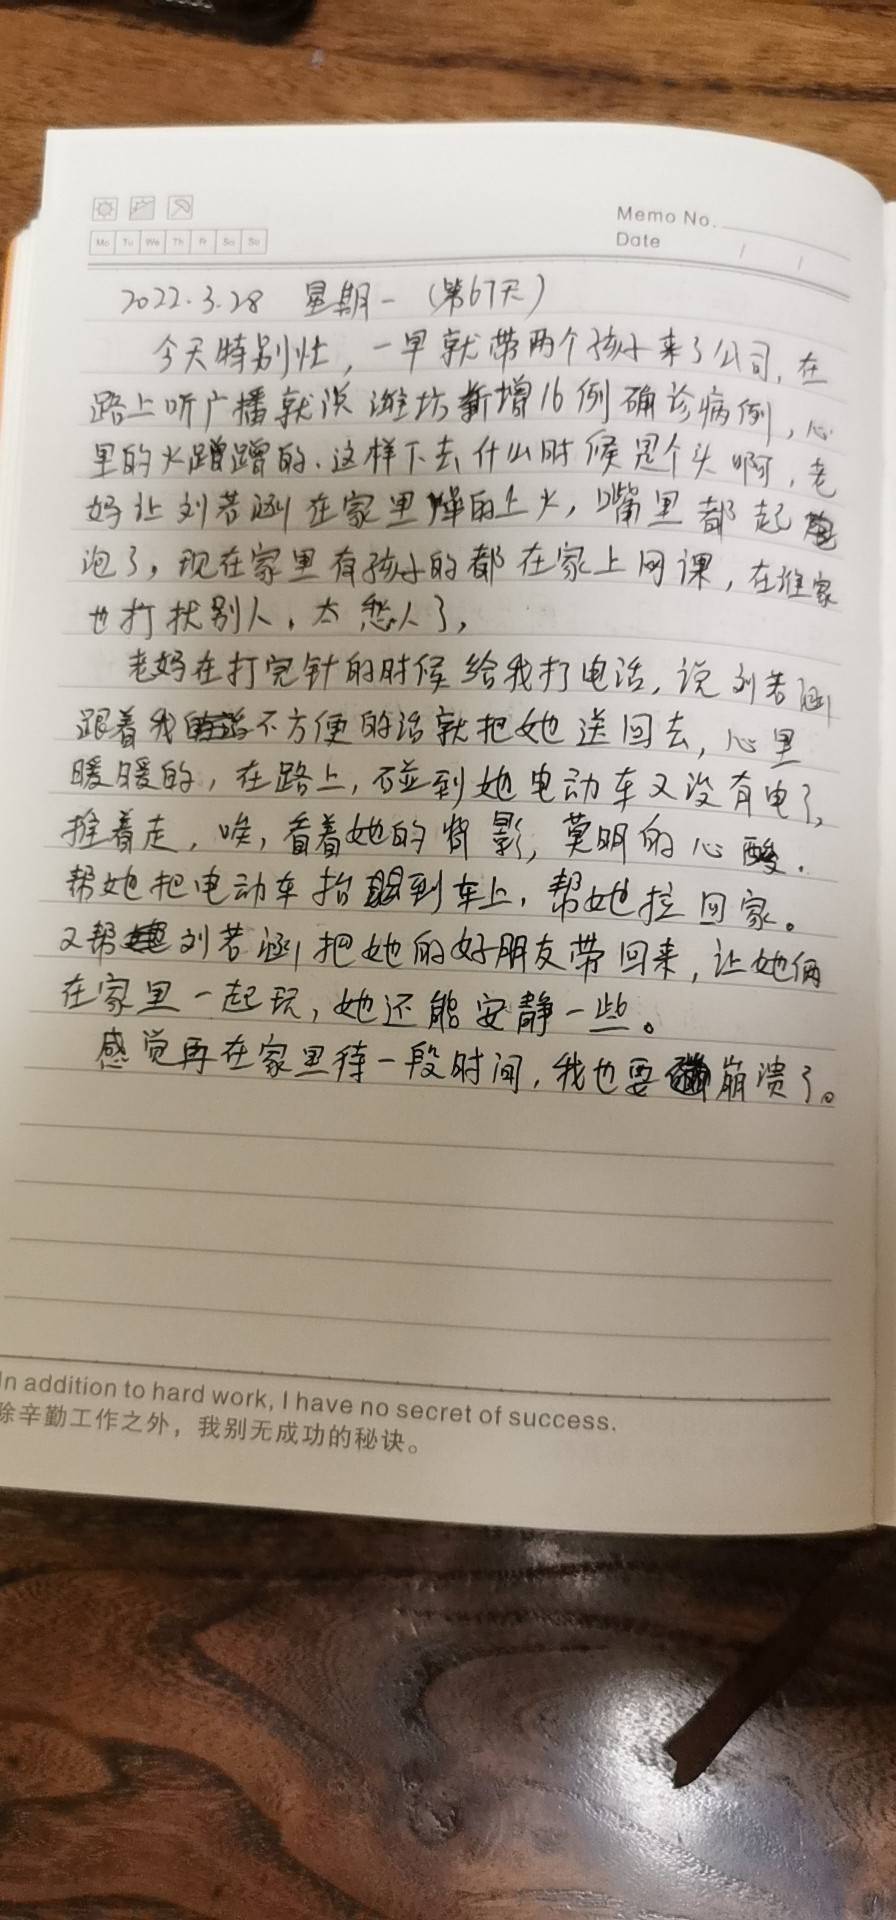 Memo No.
Mo Tu We Th Fr Sa Su
Date / /
2022.3.28 星期一 (第67天)
今天特别忙，一早就带两个孩子来了公司，在
路上听广播就说潍坊新增16例确诊病例，心
里的火蹭蹭的、这样下去什么时候是个头啊，老
妈让刘若涵在家里燥的上火，嘴里都起
泡了，现在家里有孩子的都在家上网课，在谁家
也打扰别人，太愁人了，
老妈在打完针的时候给我打电话，说刘若涵
跟着我不方便的话就把她送回去，心里
暖暖的，在路上，碰到她电动车又没有电了，
推着走，唉，看着她的背影，莫明的心酸．
帮她把电动车抬到车上，帮她拉回家。
又帮刘若涵把她的好朋友带回来，让她俩
在家里一起玩，她还能安静一些。
感觉再在家里待一段时间，我也要崩溃了。
In addition to hard work, I have no secret of success.
除辛勤工作之外，我别无成功的秘诀。